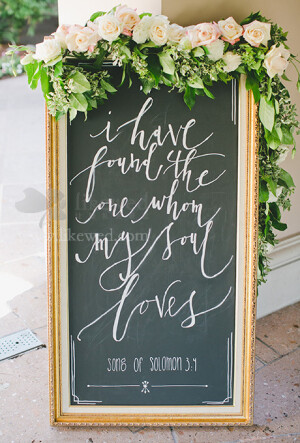 i have
found the
one whom
my soul
loves
SONG OF SOLOMON 3:4